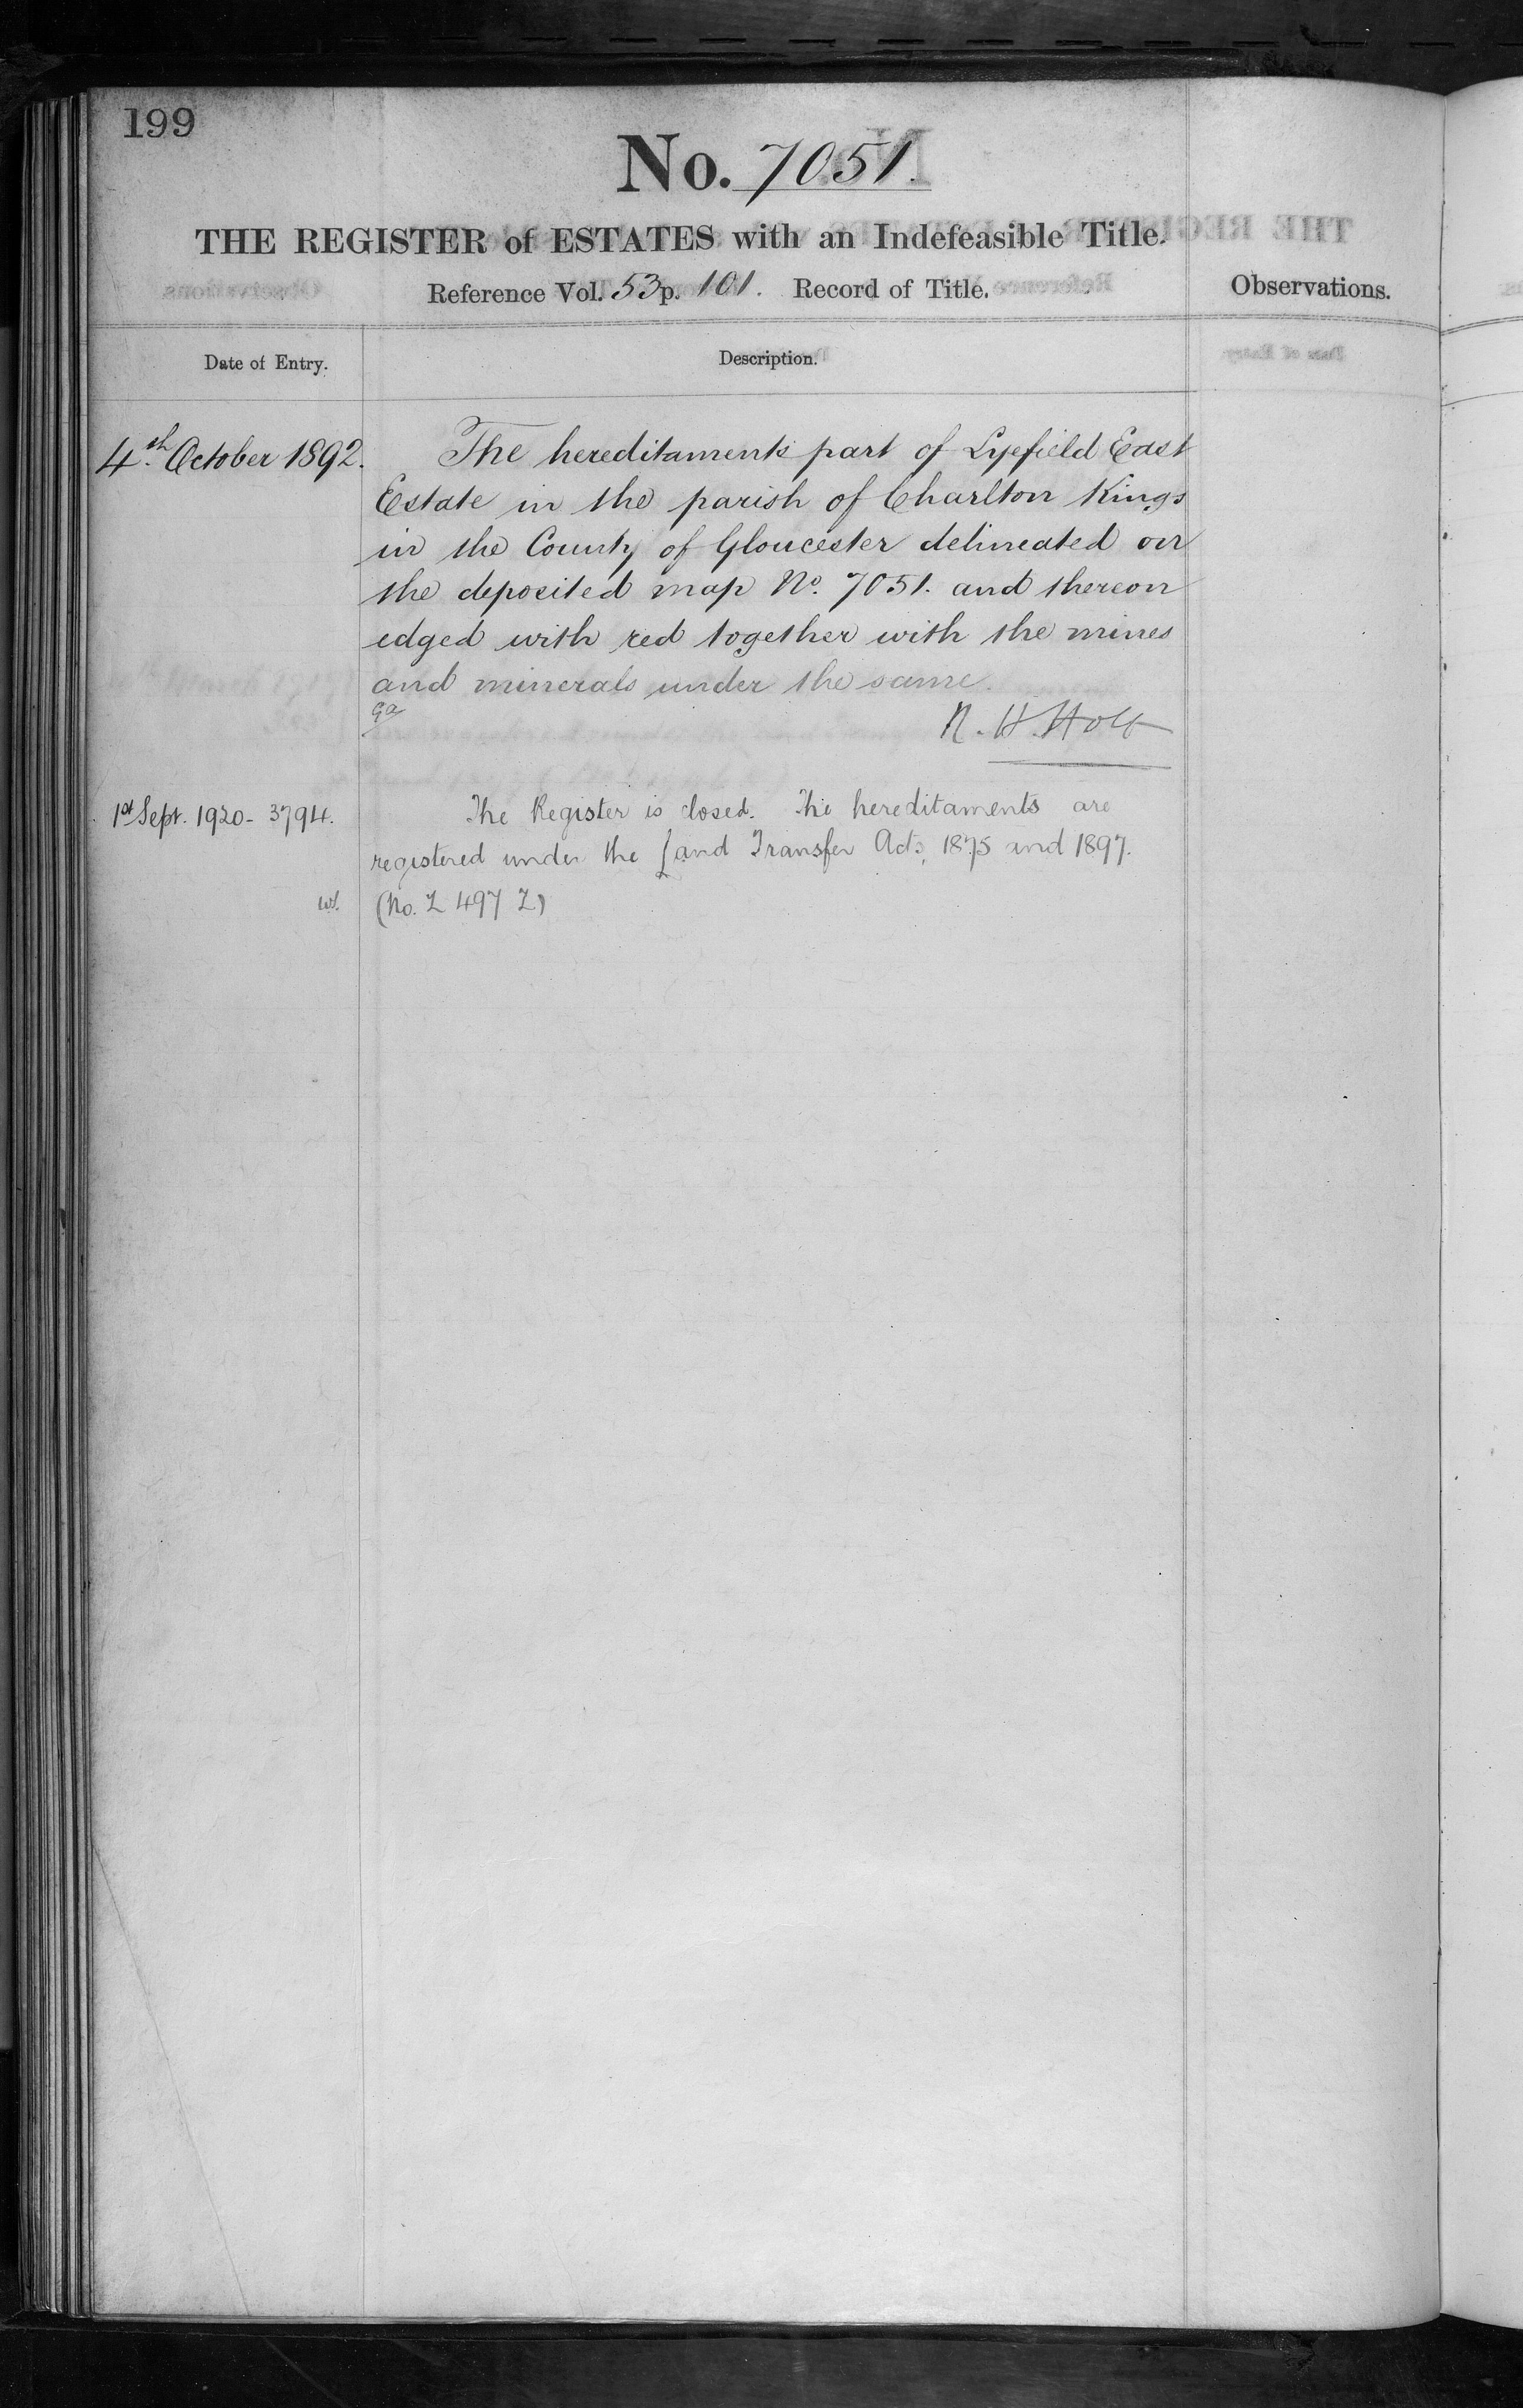 199
No. 7051.
THE REGISTER of ESTATES with an Indefeasible Title.
Reference Vol. 53 p. 101. Record of Title.
Observations.
Date of Entry.
Description.
4th October 1892.
The hereditaments part of Lyefield East
Estate in the parish of Charlton Kings
in the County of Gloucester delineated on
the deposited map No. 7051. and thereon
edged with red together with the mines
and minerals under the same.
R. H. Holt
1st Sept. 1920 - 3794.
The Register is closed. The hereditaments are
registered under the Land Transfer Acts, 1875 and 1897.
(No. Z 497 Z)